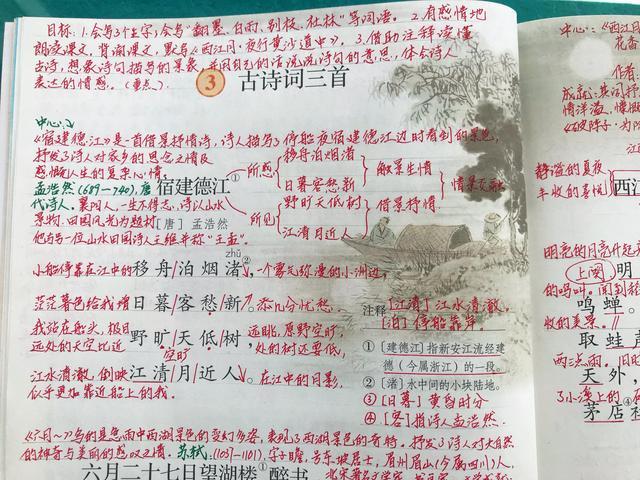 目标：1.会写3个生字；会写"翻墨、白雨、别枝、社林"等词语。2.有感情地
朗读课文，背诵课文，默写《西江月·夜行黄沙道中》。3.借助注释读懂
古诗，想象诗句描写的景象，并用自己的话说说诗句的意思，体会诗人
表达的情感。（重点）
3 古诗词三首
中心：
《宿建德江》是一首借景抒情诗，诗人描写了停船夜宿建德江边时看到的景色，
抒发了诗人对家乡的思念之情及
感慨人生的复杂心情。
孟浩然(689—740)，唐
代诗人，襄阳人，一生不得志，诗以山水
景物、田园风光为题材
他与另一位山水田园诗人王维并称"王孟"。
宿建德江①
[唐] 孟浩然
所感 移舟泊烟渚 日暮客愁新 触景生情
所见 野旷天低树 江清月近人 借景抒情
情景交融
zhǔ
小船停靠在江中的移舟泊烟渚②，一个雾气弥漫的小洲边，
茫茫暮色给我增日暮客愁新。添几分忧愁。
我站在船头，极目 野旷天低树，远眺，原野空旷，
远处的天空比近 空旷 处的树还要低，
江水清澈，倒映江清月近人。在江中的月影，
似乎更加靠近船上的我。
注释
[江清]江水清澈。
[泊]停船靠岸。
①[建德江]指新安江流经建
德（今属浙江）的一段。
②[渚]水中间的小块陆地。
③[日暮]黄昏时分
④[客]指诗人孟浩然。
《六月～》写的是急雨中西湖景色的变幻多姿，表现了西湖景色的奇特。抒发了诗人对大自然
的神奇与美丽的感叹之情。苏轼：(1037—1101)，字子瞻，号东坡居士，眉州眉山(今属四川)人，
六月二十七日望湖楼①醉书
北宋著名
中心：《西江月
作者
成就：
情洋溢，慷慨
《破阵子·为陈
静谧的夏夜
丰收的喜悦
西江
明亮的月亮升起
上阕 明
的鸣叫。
鸣蝉。
收的美景。
取蛙声
天外，
了小溪上的
茅店社